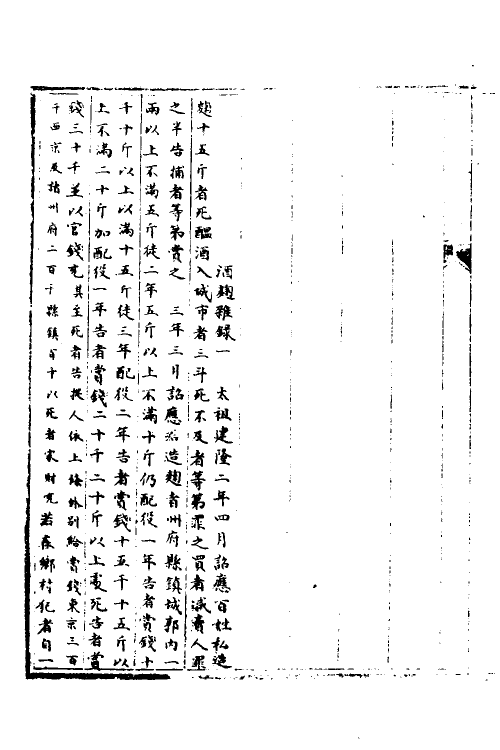 酒麴雜錄一 太祖建隆二年四月詔應百姓私造
麴十五斤者死醖酒入城市者三斗死不及者等第罪之買者減賣人罪
之半告捕者等第賞之 三年三月詔應造麴者州府縣鎮城郭內一
兩以上不滿五斤徒二年五斤以上不滿十斤仍配役一年告者賞錢十
千十斤以上以滿十五斤徒三年配役二年告者賞錢十五千十五斤以
上不滿二十斤加配役一年告者賞錢二十千二十斤以上處死告者賞
錢三十千並以官錢充其至死者告捉人依上條外別給賞錢東京三百
千西京及諸州府二百千縣鎮百千以死者家財充若在鄉村犯者自一